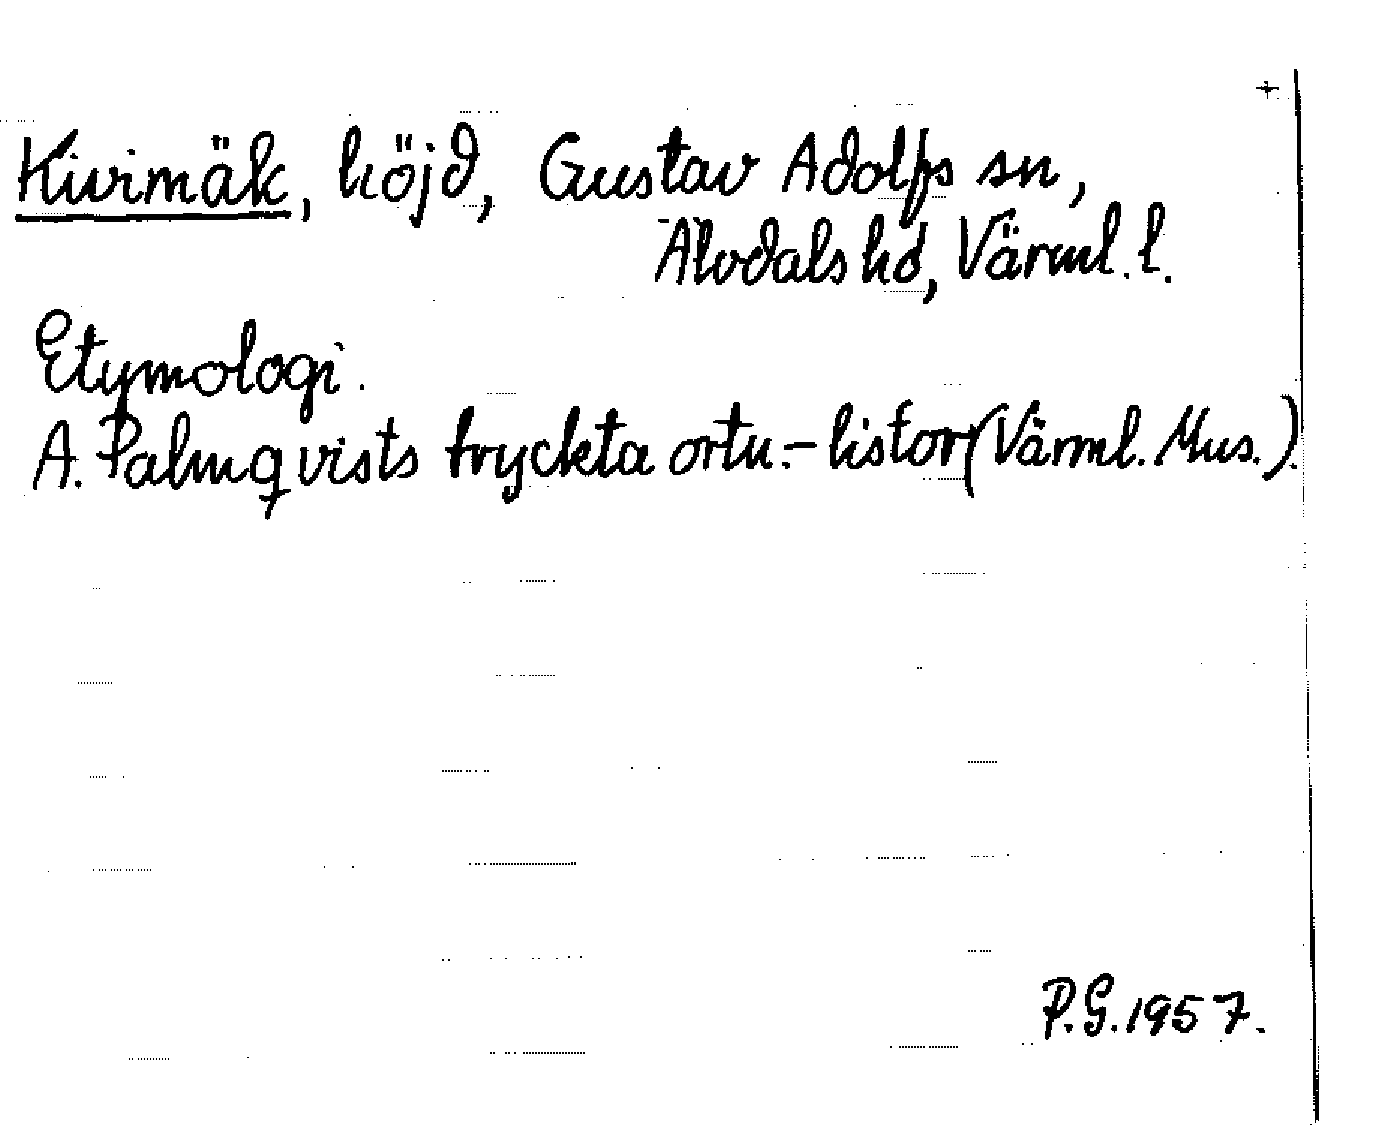 +
Kivimäk, höjd, Gustav Adolfs sn,
Älvdals hd, Värml. l.
Etymologi.
A. Palmqvists tryckta ortn.-listor (Värml. Mus.).
P.G. 1957.